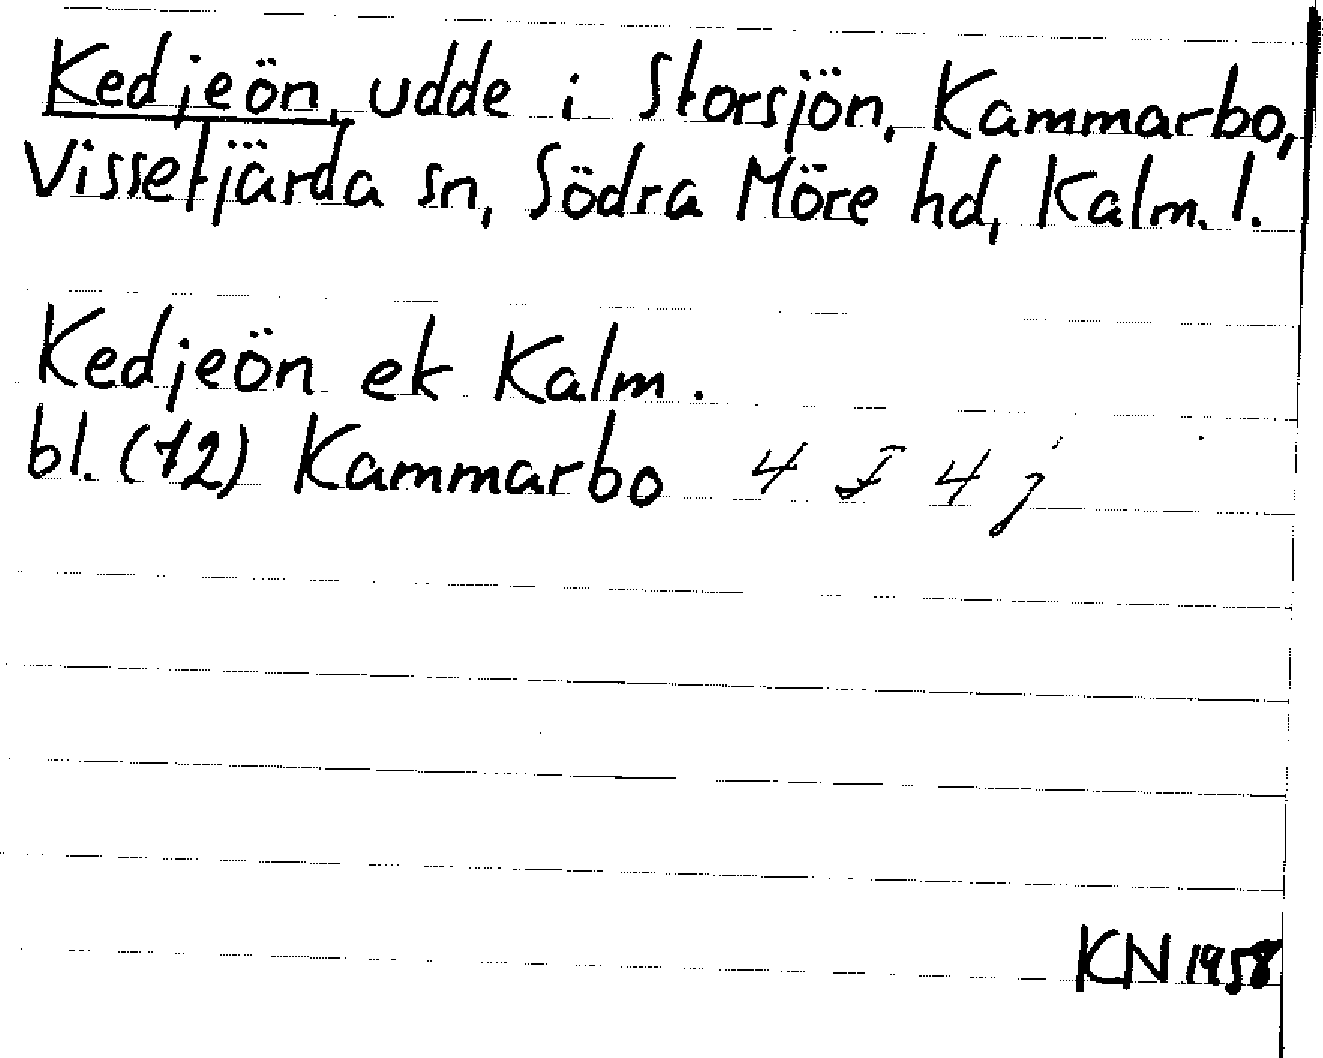 Kedjeön, udde i Storsjön, Kammarbo,
Vissefjärda sn, Södra Möre hd, Kalm. l.
Kedjeön ek Kalm.
bl. (12) Kammarbo 4 F 4 j
KN 1958